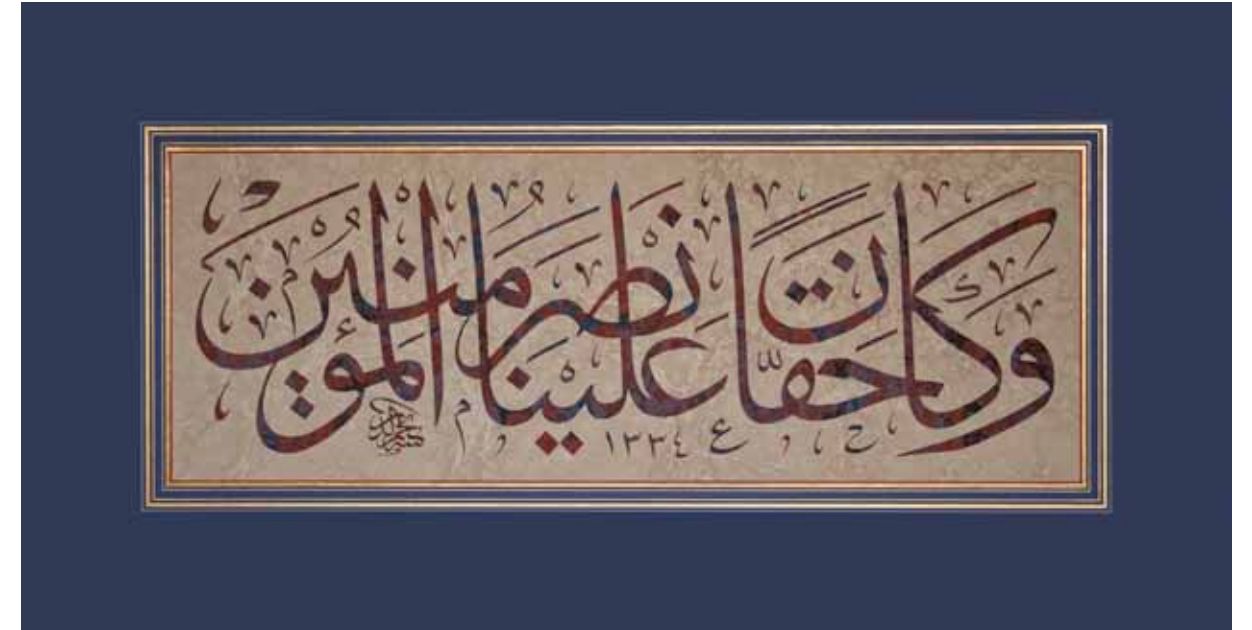 وَكَانَ حَقًّا عَلَيْنَا نَصْرُ الْمُؤْمِنِينَ
١٣٣٤